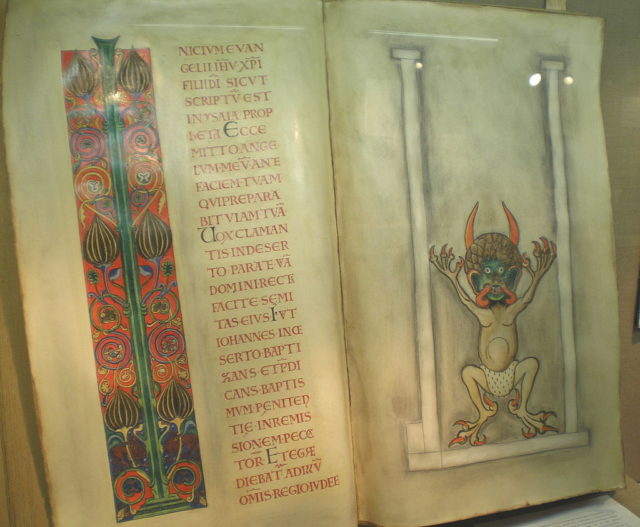 NICIVM EVAN
GELII IHV XPI
FILII DI SICVT
SCRIPTV̄ EST
IN YSAIA PROP
HETA ECCE
MITTO ANGE
LVM·MEV̄·ANTE
FACIEM·TVAM·
QVI PREPARA
BIT VIAM TVĀ
UOX CLAMAN
TIS·IN DESER
TO·PARATE·VĀ
DOMINI RECT
FACITE·SEMI
TAS·EIVS·FVT
IOHANNES·IN
SERTO·BAPTI
ZANS·ET PDI
CANS·BAPTIS
MVM·PENITEN
TIE·IN REMIS
SIONEM·PECC
TOR ET EGRE
DIEBAT ADIV̄
OMIS·REGIO IVDEE